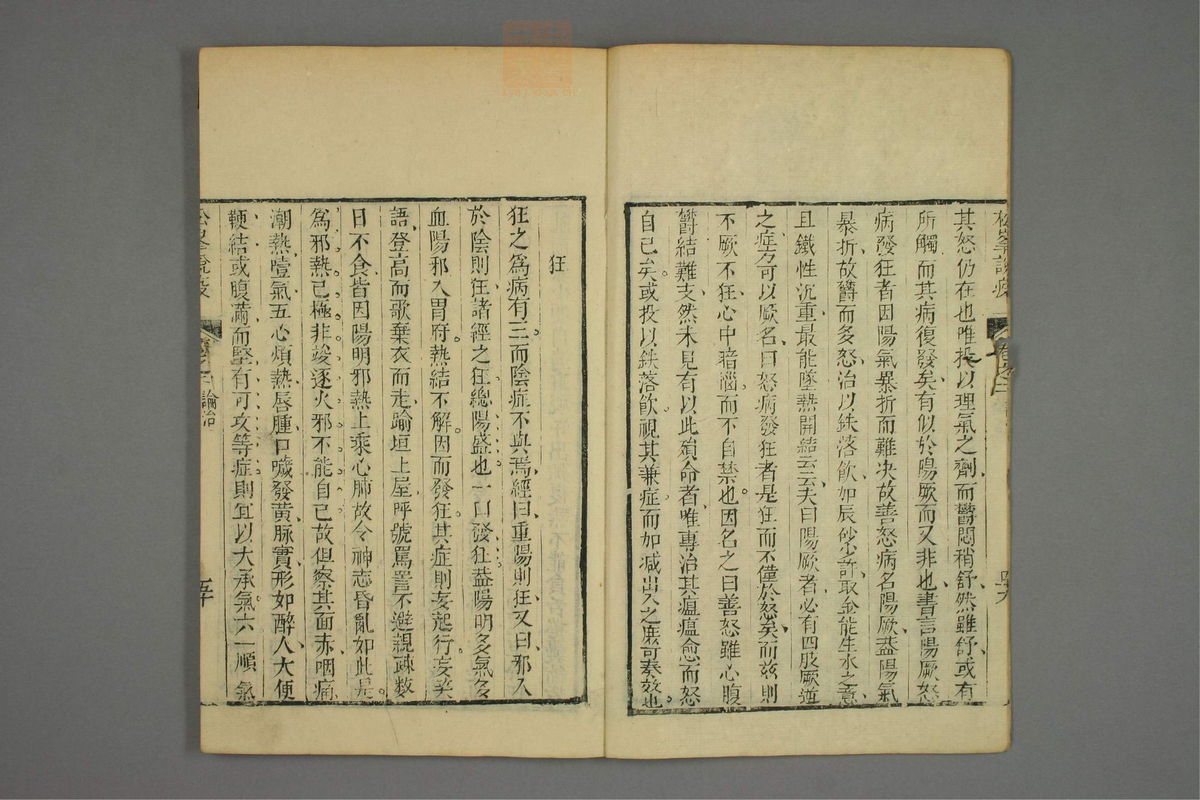 松峯說疫
卷之二
其怒仍在也唯投以理氣之劑而鬱悶稍舒然雖舒或有
所觸而其病復發矣有似於陽厥而又非也書言陽厥怒
病發狂者因陽氣暴折而難决故善怒病名陽厥葢陽氣
暴折故鬱而多怒治以鉄落飲如辰砂少許取金能生水之意
且鐵性沉重最能墜熱開結云云夫曰陽厥者必有四肢厥逆
之症方可以厥名曰怒病發狂者是狂而不僅於怒矣而兹則
不厥不狂心中瘖惱而不自禁也因名之曰善怒雖心腹
鬱結難支然未見有以此殞命者唯專治其瘟瘟愈而怒
自已矣或投以鉄落飲視其兼症而加减出入之庶可奏效也
狂
狂之爲病有三而陰症不與焉經曰重陽則狂又曰邪入
於陰則狂諸經之狂總陽盛也一曰發狂葢陽明多氣多
血陽邪入胃府熱結不解因而發狂其症則妄起行妄笑
語登高而歌棄衣而走踰垣上屋呼號罵詈不避親疎數
日不食皆因陽明邪熱上乘心肺故令神志昏亂如此是
爲邪熱已極非竣逐火邪不能自已故但察其面赤咽痛
潮熱噎氣五心煩熱唇腫口噦發黃脉實形如醉人大便
鞕結或腹滿而堅有可攻等症則宜以大承氣六一順氣
松峯說疫
論治
五十